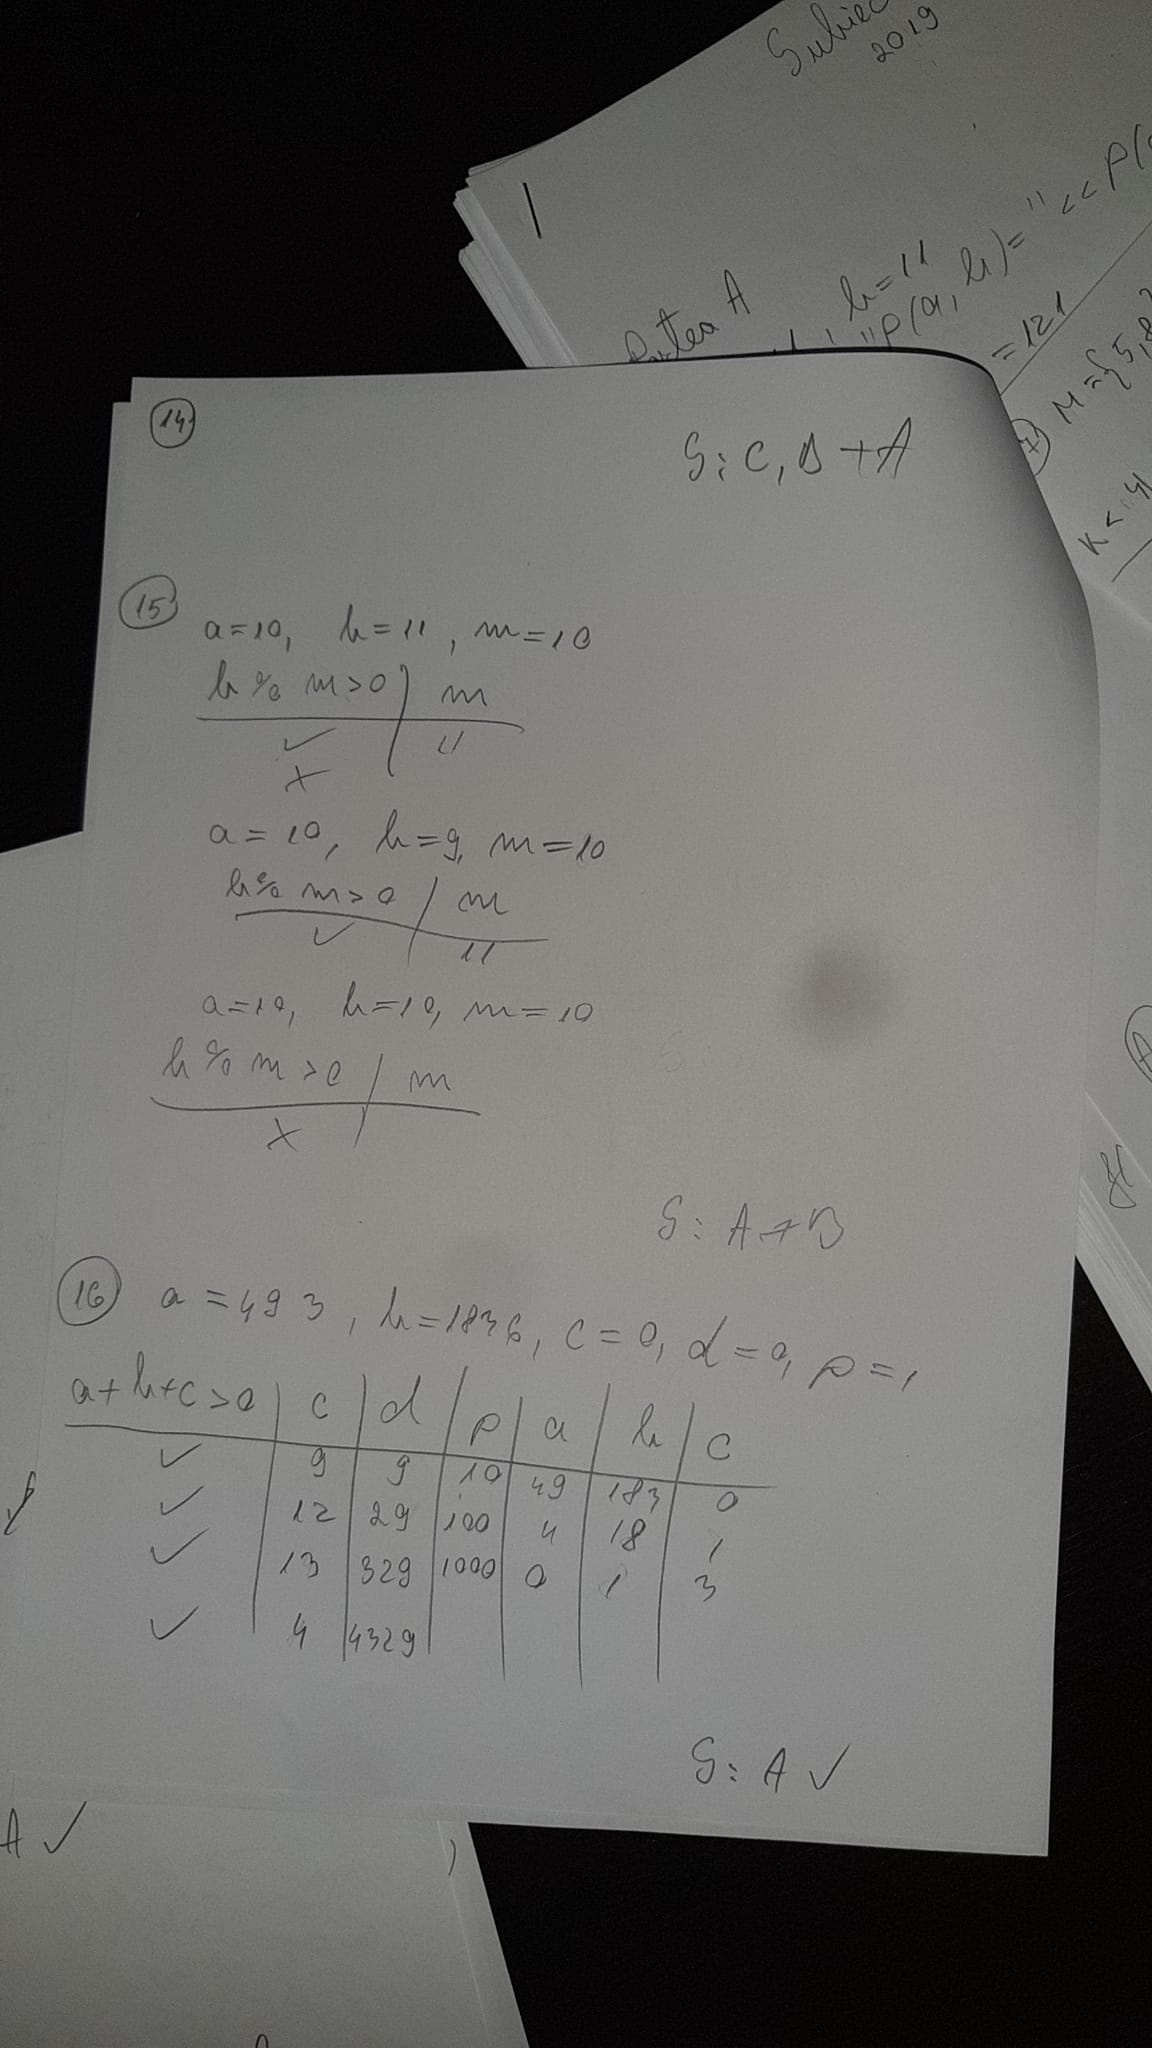 2019
Partea A
b=11
"P(a, b)="<<P(
=121
M={5,8
K<
14
S: C, B +A
15
a=10, b=11, m=10
b% m>0 | m
✓ 11
x
a=10, b=9, m=10
b% m>0 | m
✓ 11
a=10, b=10, m=10
b% m>0 | m
x
S: A +B
16 a=493, b=1836, c=0, d=0, p=1
a+b+c>0 | c | d | p | a | b | c
✓ 9 | 9 | 10 | 49 | 183 | 0
✓ 12 | 29 | 100 | 4 | 18 | 1
✓ 13 | 329 | 1000 | 0 | 1 | 3
✓ 4 | 4329
S: A ✓
A ✓